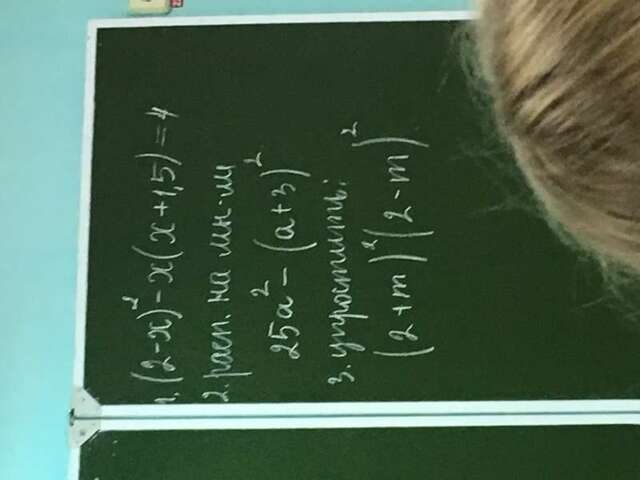 1. (2-x)²-x(x+1,5)=4
2. расп. на мн-ли
25a²-(a+3)²
3. упростить:
(2+m)²(2-m)²